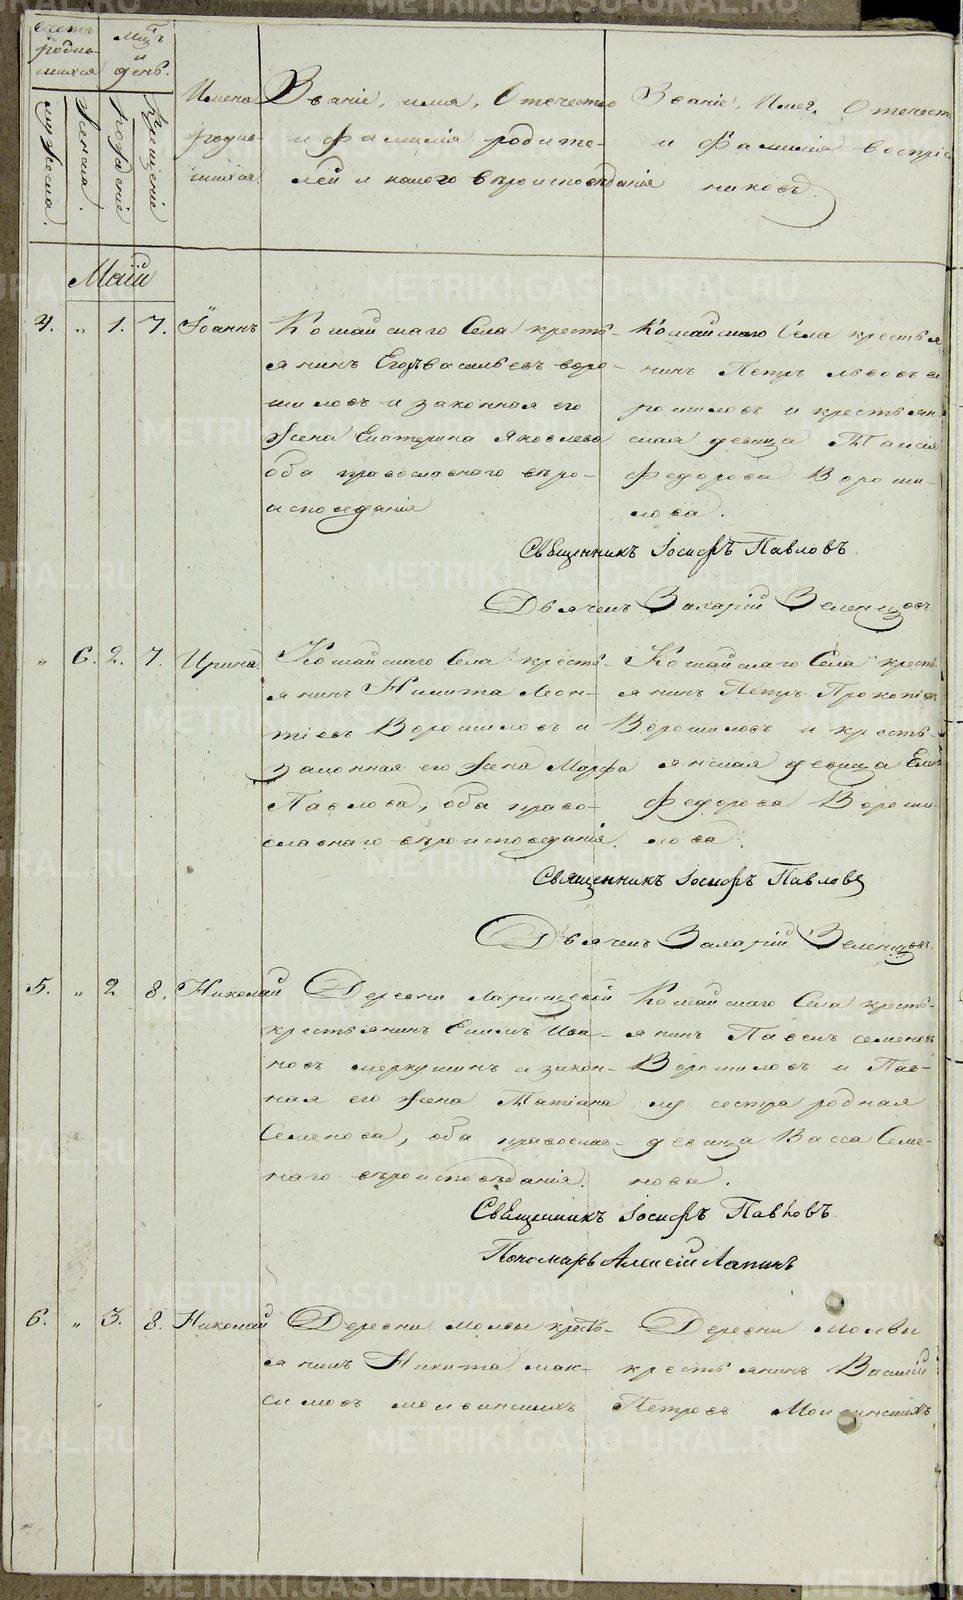 Счетъ родив-шихся
Мѣц̃ъ и день.
Имена родив-шихся.
Званіе, имя, Отечество и фамилія родите-лей и какого вѣроисповѣданія
Званіе, Имя, Отечест и фамилія воспріе никовъ.
мужеска.
Женска.
Рожденіе
Крещеніе
Маій
4. „ 1. 7. Іоаннъ
Кошайскаго Села кресть-
янинъ Егоръ васильевъ воро-
шиловъ и законная его
Жена Екатерина Яковлева
оба православнаго вѣро-
исповеданія
Кошайскаго Села крестья
нинъ Петръ львовъ во
рошиловъ и крестьян
ская девица Таисія
Федорова Вороши-
лова.
Священникъ Іосифъ Павловъ.
Дьячекъ Захарій Зеленцовъ.
„ 6. 2. 7. Ирина.
Кошайскаго Села кресть-
янинъ Никита Леон-
тіевъ Ворошиловъ и
законная его Жена Марфа
Павлова, оба право-
славнаго вѣроисповеданія.
Кошайскаго Села крест
янинъ Петръ Прокопіев
Ворошиловъ и кресть-
янская девица Елен
Федорова Вороши
лова.
Священникъ Іосифъ Павловъ
Дьячекъ Захарій Зеленцовъ.
5. „ 2 8. Николай
Деревни Ларищевой
крестьянинъ Екимъ Ива-
новъ меркушинъ и закон-
ная его Жена Татіана
Семенова, оба православ-
наго вѣроисповѣданія.
Кошайскаго Села кресть-
янинъ Павелъ семеновъ
Ворошиловъ и Пав-
лу сестра родная
девица Васса Семе-
нова.
Священникъ Іосифъ Павловъ.
Пономарь Алексій Лапинъ
6. „ 3. 8. Николай
Деревни молвы крестъ-
янинъ Никита мак-
симовъ молвинскихъ
Деревни молвы
крестьянинъ Василій
Петровъ Молвинскихъ
METRIKI.GASO-URAL.RU